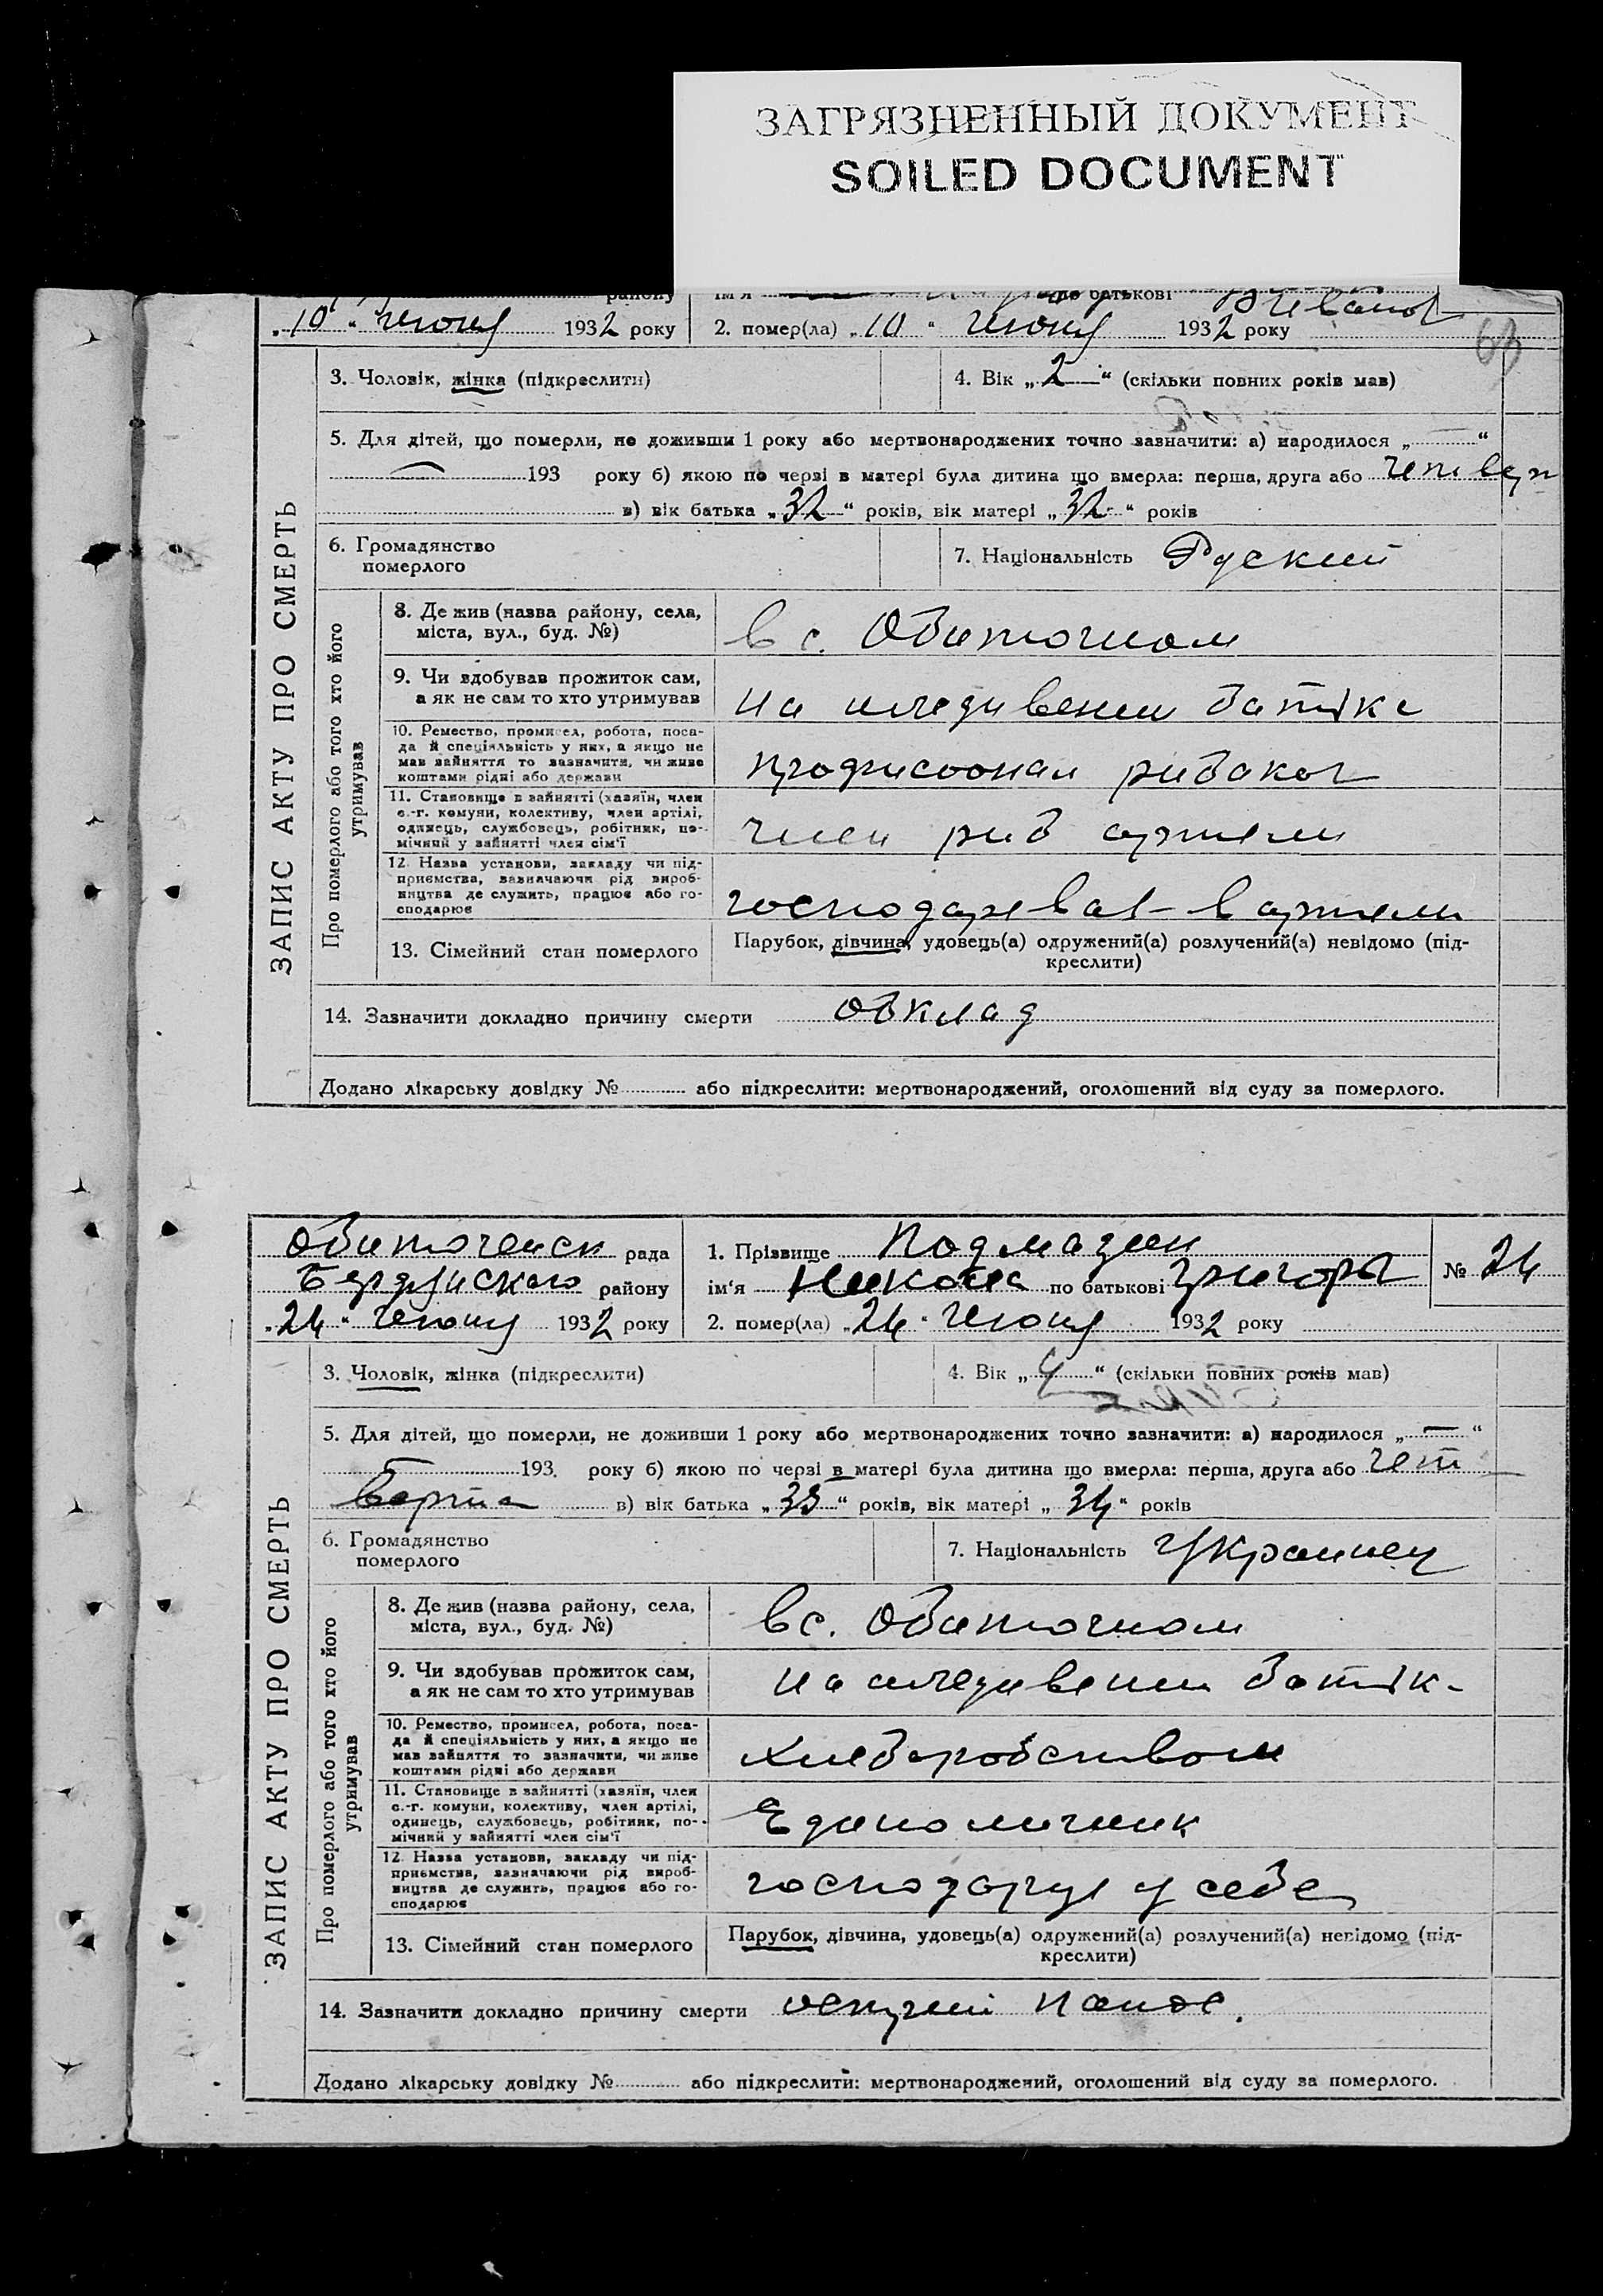 ЗАГРЯЗНЕННЫЙ ДОКУМЕНТ
SOILED DOCUMENT
району ім'я по батькові
„10“ июня 1932 року 2. помер(ла) „10“ июня 1932 року
68
3. Чоловік, жінка (підкреслити) 4. Вік „2“ (скільки повних років мав)
5. Для дітей, що померли, не доживши 1 року або мертвонароджених точно зазначити: а) народилося „—“
— 193 року б) якою по черзі в матері була дитина що вмерла: перша, друга або
в) вік батька „32“ років, вік матері „32“ років
6. Громадянство
померлого
7. Національність Руский
ЗАПИС АКТУ ПРО СМЕРТЬ
Про померлого або того хто його
утримував
8. Де жив (назва району, села,
міста, вул., буд. №)
в с. Обиточном
9. Чи здобував прожиток сам,
а як не сам то хто утримував
На иждивении батька
10. Ремество, промисел, робота, поса-
да й спеціяльність у них, а якщо не
мав зайняття то зазначити, чи живе
коштами рідні або держави
рибакол
11. Становище в зайнятті (хазяїн, член
с.-г. комуни, колективу, член артілі,
одинець, службовець, робітник, по-
мічний у зайнятті член сім'ї
член риб артели
12. Назва установи, закладу чи під-
приємства, зазначаючи рід вироб-
ництва де служить, працює або го-
сподарює
господаревал в артели
13. Сімейний стан померлого
Парубок, дівчина, удовець(а) одружений(а) розлучений(а) невідомо (під-
креслити)
14. Зазначити докладно причину смерти обклад
Додано лікарську довідку № або підкреслити: мертвонароджений, оголошений від суду за померлого.
Обиточенск рада 1. Прізвище Подмазин № 24
Бердянского району ім'я Никола по батькові Григорьев
„24“ июня 1932 року 2. помер(ла) „24“ июня 1932 року
3. Чоловік, жінка (підкреслити) 4. Вік „4“ (скільки повних років мав)
5. Для дітей, що померли, не доживши 1 року або мертвонароджених точно зазначити: а) народилося „—“
193 року б) якою по черзі в матері була дитина що вмерла: перша, друга або чет
верта в) вік батька „35“ років, вік матері „34“ років
6. Громадянство
померлого
7. Національність Украинец
ЗАПИС АКТУ ПРО СМЕРТЬ
Про померлого або того хто його
утримував
8. Де жив (назва району, села,
міста, вул., буд. №)
в с. Обиточном
9. Чи здобував прожиток сам,
а як не сам то хто утримував
На иждивении батьк
10. Ремество, промисел, робота, поса-
да й спеціяльність у них, а якщо не
мав зайняття то зазначити, чи живе
коштами рідні або держави
хлеборобством
11. Становище в зайнятті (хазяїн, член
с.-г. комуни, колективу, член артілі,
одинець, службовець, робітник, по-
мічний у зайнятті член сім'ї
Единоличник
12. Назва установи, закладу чи під-
приємства, зазначаючи рід вироб-
ництва де служить, працює або го-
сподарює
господарує у себе
13. Сімейний стан померлого
Парубок, дівчина, удовець(а) одружений(а) розлучений(а) невідомо (під-
креслити)
14. Зазначити докладно причину смерти
Додано лікарську довідку № або підкреслити: мертвонароджений, оголошений від суду за померлого.